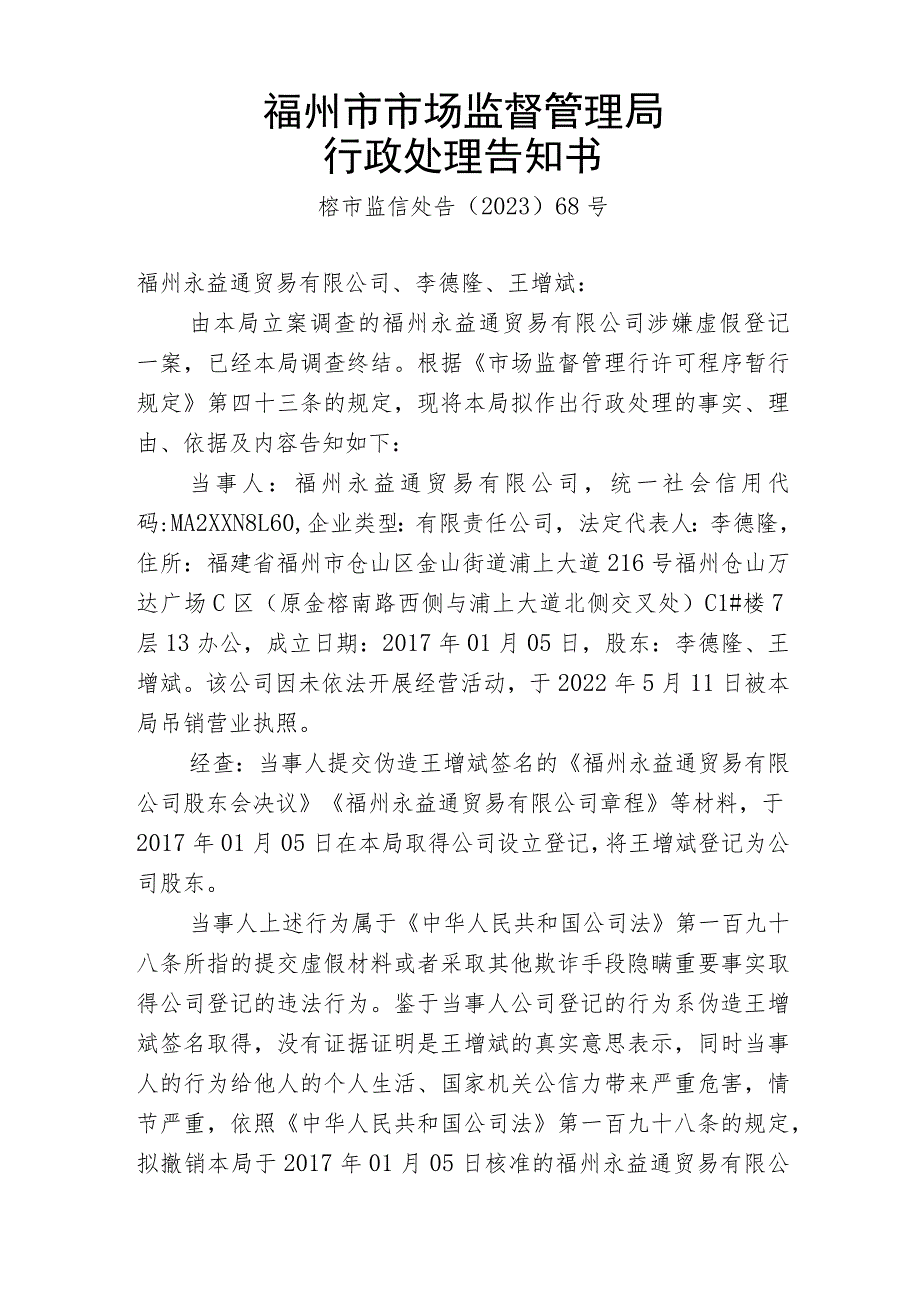 福州市市场监督管理局
行政处理告知书
榕市监信处告（2023）68 号
福州永益通贸易有限公司、李德隆、王增斌：
由本局立案调查的福州永益通贸易有限公司涉嫌虚假登记
一案，已经本局调查终结。根据《市场监督管理行许可程序暂行
规定》第四十三条的规定，现将本局拟作出行政处理的事实、理
由、依据及内容告知如下：
当事人：福州永益通贸易有限公司，统一社会信用代
码:MA2XXN8L60,企业类型：有限责任公司，法定代表人：李德隆，
住所：福建省福州市仓山区金山街道浦上大道 216 号福州仓山万
达广场 C 区（原金榕南路西侧与浦上大道北侧交叉处）C1#楼 7
层 13 办公，成立日期：2017 年 01 月 05 日，股东：李德隆、王
增斌。该公司因未依法开展经营活动，于 2022 年 5 月 11 日被本
局吊销营业执照。
经查：当事人提交伪造王增斌签名的《福州永益通贸易有限
公司股东会决议》《福州永益通贸易有限公司章程》等材料，于
2017 年 01 月 05 日在本局取得公司设立登记，将王增斌登记为公
司股东。
当事人上述行为属于《中华人民共和国公司法》第一百九十
八条所指的提交虚假材料或者采取其他欺诈手段隐瞒重要事实取
得公司登记的违法行为。鉴于当事人公司登记的行为系伪造王增
斌签名取得，没有证据证明是王增斌的真实意思表示，同时当事
人的行为给他人的个人生活、国家机关公信力带来严重危害，情
节严重，依照《中华人民共和国公司法》第一百九十八条的规定，
拟撤销本局于 2017 年 01 月 05 日核准的福州永益通贸易有限公